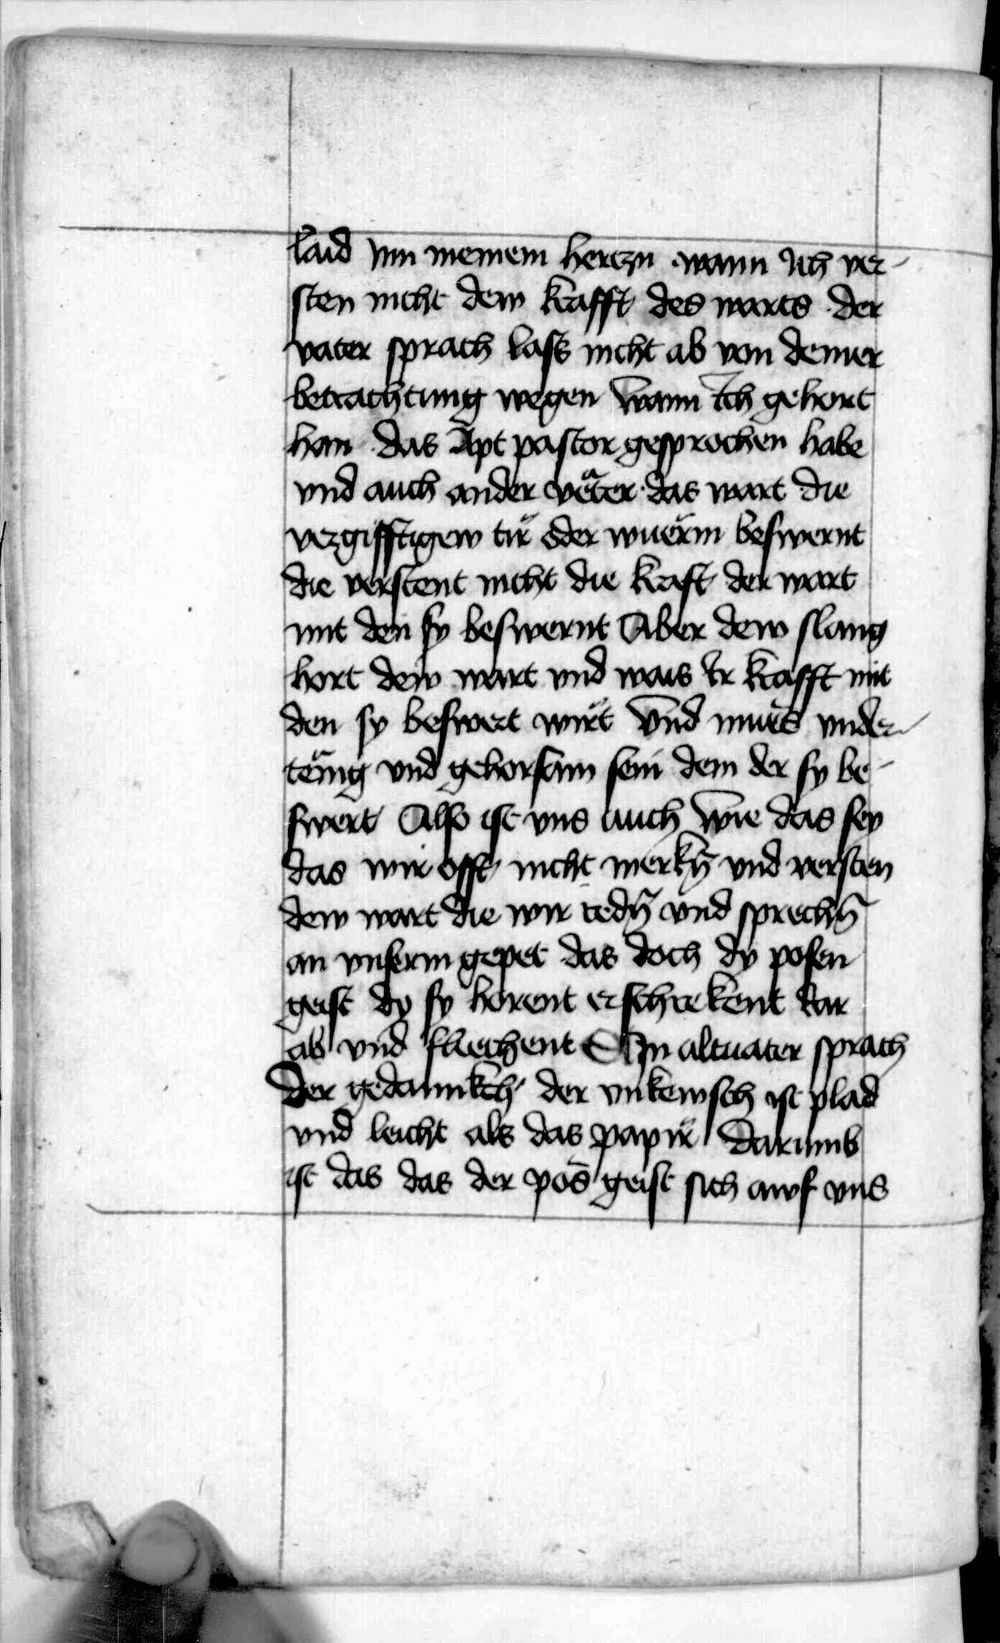 laid inn meinem herczn · wann Ich ver-
sten nicht dew krafft des warts · der
vater sprach lass nicht ab von deiner
betrachtung wegen wann Ich gehort
han · das Apt pastor gesprochen habe
vnd auch ander veter · das wart die
vergifftigew tir oder wuerm beswernt
die verstent nicht die kraft der wart
mit den sy beswernt Aber dew slang
hort dew wart vnd wais ir krafft mit
den sy beswert wirt vnd mues vnder-
tenig vnd gehorsam sein dem der sy be-
swert Also ist vns auch wie das sey
das wir offt nicht merkn̄ vnd versten
dew wart die wir redn̄ vnd sprechn̄
an vnserm gepet das doch dy posen
geist dy sy horent erschrekent dar
ab vnd fliechent Ein altuater sprach
Der gedannkch der vnkewsch ist plad
vnd leicht als das papir Darumb
ist das das der pos geist sich awf vns